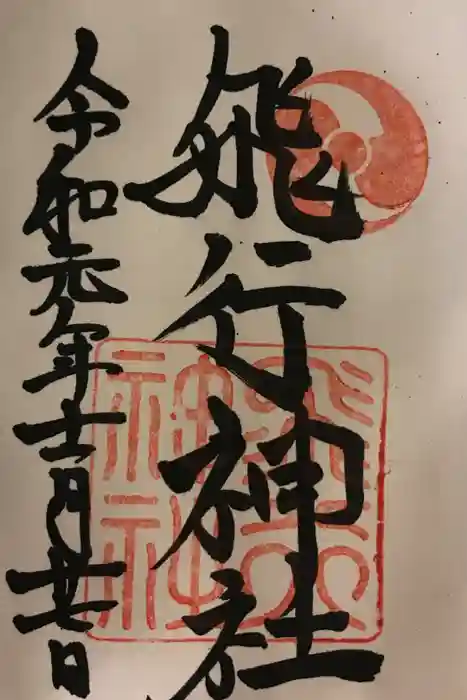 飛行神社
令和元年十一月廿七日
飛行
神社